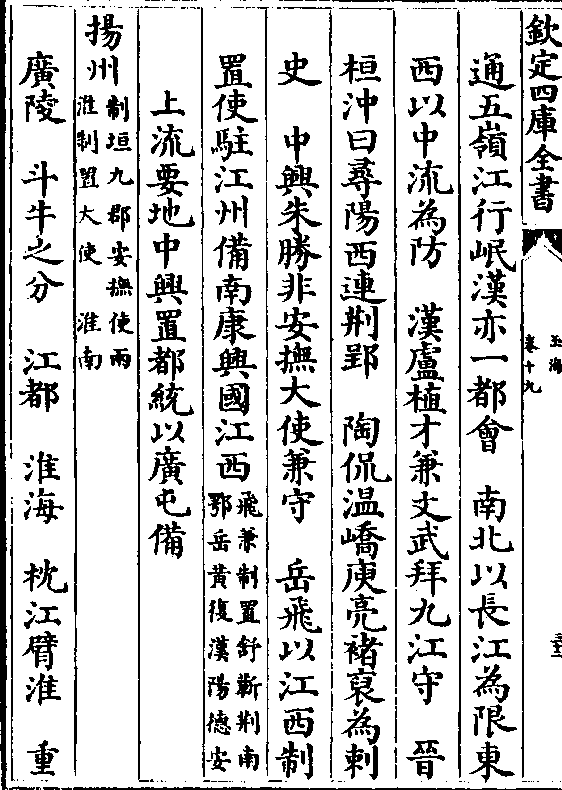 欽定四庫全書
玉海
卷十九
通五嶺江行岷漢亦一都會 南北以長江為限東
西以中流為防 漢盧植才兼文武拜九江守 晉
桓沖曰尋陽西連荆郢 陶侃温嶠庾亮褚裒為刺
史 中興朱勝非安撫大使兼守 岳飛以江西制
置使駐江州備南康興國江西飛兼制置舒蘄荆南鄂岳黄復漢陽德安
上流要地中興置都統以廣屯備
揚州制垣九郡安撫使兩淮制置大使 淮南
廣陵 斗牛之分 江都 淮海 枕江臂淮 重